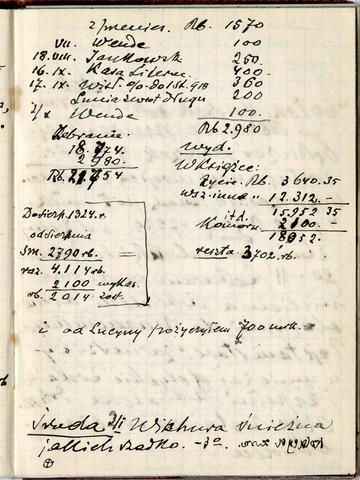 z przenies. Rb. 1570
VII. Wende 100
18. VIII. Jankowsk 250
16. IX. Kasa Literac. 400.-
17. IX. 360
200
1/X Wende 100.
Rb 2.980
Zebranie.
18.774
2980.
Rb. 21.754
wyd.
W Książce:
Życie. Rb. 3640.35
wsz. inne " 12.312.-
15.952 35
itd.
Komorn. 2100.-
18052.
reszta 3702. rb.
Do sierp. 1324. r.
od sierpnia
Sm. 2790 rb.
raz. 4.114 rb.
2100 wykas.
rb. 2014 zost.
i od Lucyny pożyczyłem 700 mrk.
Środa 3/II Wichura śnieżna
jakich rzadko. -3°.